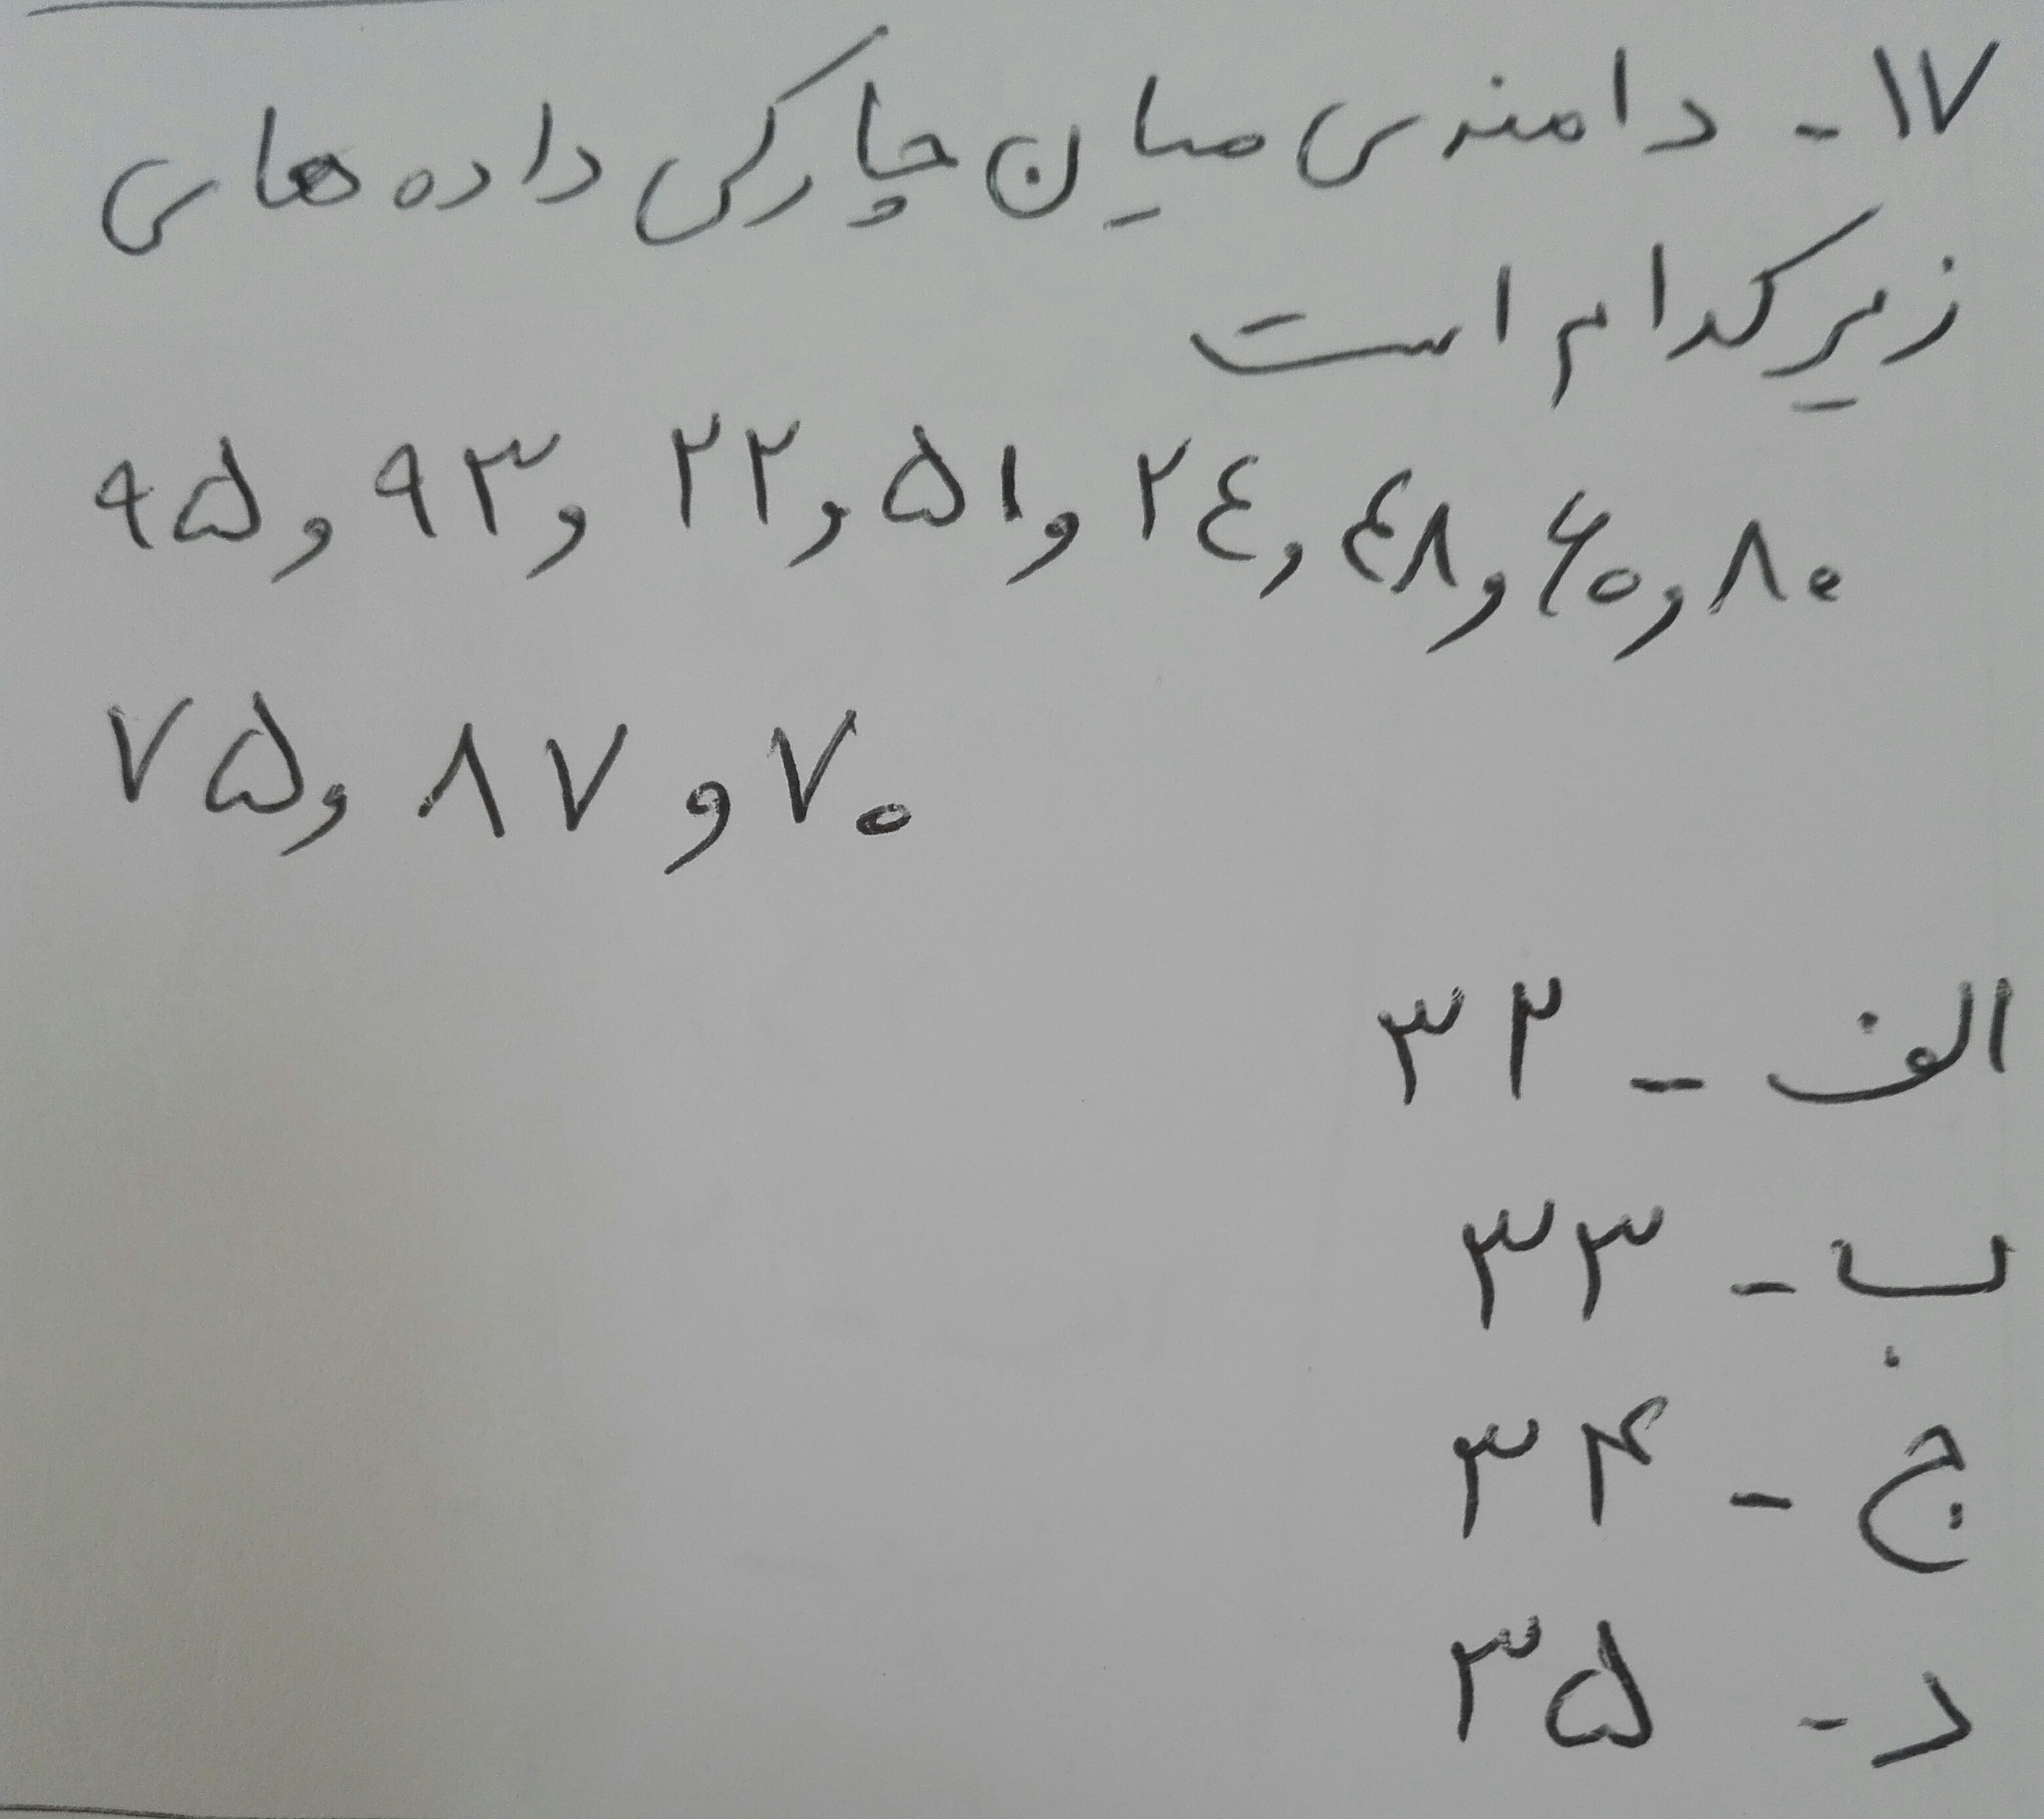 ۱۷- دامنه‌ی میان چارکی داده های
زیر کدام است
۹۵, ۹۳, ۲۲, ۵۱, ۲٤, ٤۸, ۶۰, ۸۰
۷۵, ۸۷ و ۷۰
الف - ۳۲
ب - ۳۳
ج - ۳۴
د - ۳۵